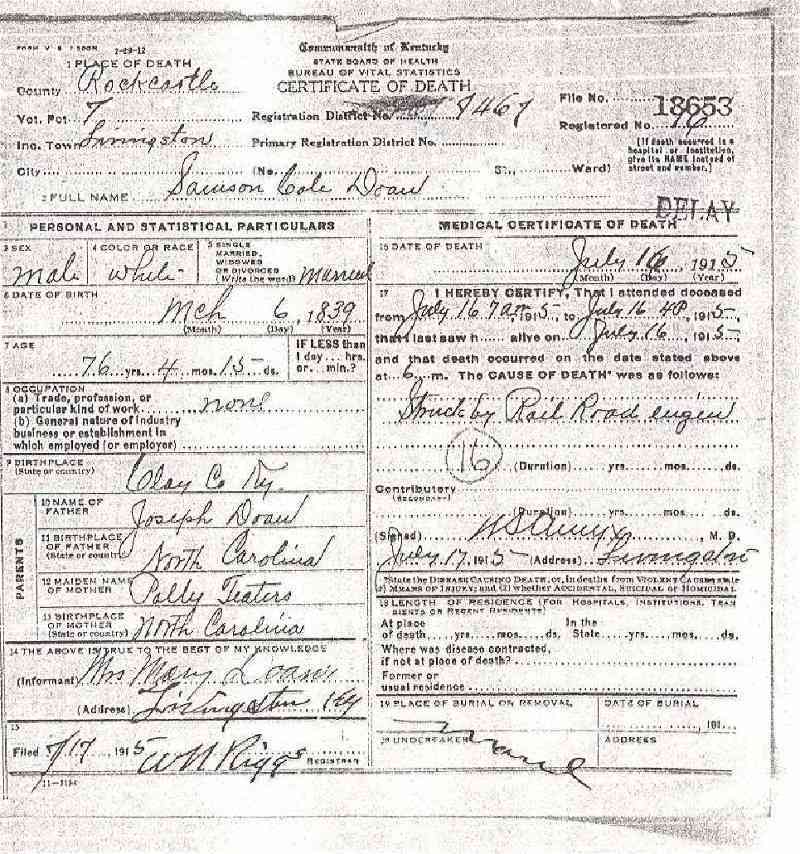 FORM V. S. 1-29-12
Commonwealth of Kentucky
STATE BOARD OF HEALTH
BUREAU OF VITAL STATISTICS
CERTIFICATE OF DEATH
1 PLACE OF DEATH
County Rockcastle
Vot. Pct 7
Inc. Town Livingston
City
Registration District No. 1461
Primary Registration District No.
(No. St., Ward)
File No. 18653
Registered No. 16
(If death occurred in a hospital or institution, give its NAME instead of street and number.)
2 FULL NAME Samson Cole Doan
DELAY
PERSONAL AND STATISTICAL PARTICULARS
3 SEX
male
4 COLOR OR RACE
white
5 SINGLE, MARRIED, WIDOWED OR DIVORCED (Write the word) Married
6 DATE OF BIRTH
Mch 6, 1839
(Month) (Day) (Year)
7 AGE
76 yrs. 4 mos. 15 ds.
IF LESS than 1 day... hrs. or... min.?
8 OCCUPATION
(a) Trade, profession, or particular kind of work none
(b) General nature of industry business or establishment in which employed (or employer)
9 BIRTHPLACE
(State or country) Clay Co Ky.
PARENTS
10 NAME OF FATHER Joseph Doan
11 BIRTHPLACE OF FATHER (State or country) North Carolina
12 MAIDEN NAME OF MOTHER Polly Teaters
13 BIRTHPLACE OF MOTHER (State or country) North Carolina
14 THE ABOVE IS TRUE TO THE BEST OF MY KNOWLEDGE
(Informant) Mrs Mary Doan
(Address) Livingston Ky
15
Filed 7/17, 1915 W N Riggs REGISTRAR
11-1184
MEDICAL CERTIFICATE OF DEATH
16 DATE OF DEATH
July 16, 1915
(Month) (Day) (Year)
17 I HEREBY CERTIFY, That I attended deceased
from July 16 7am, 1915, to July 16, 1915,
that I last saw h alive on July 16, 1915,
and that death occurred on the date stated above
at 6 m. The CAUSE OF DEATH* was as follows:
Struck by Rail Road engen
16
(Duration) yrs. mos. ds.
Contributory
(SECONDARY)
(Duration) yrs. mos. ds.
(Signed) M. D.
July 17, 1915 (Address) Livingston
*State the DISEASE CAUSING DEATH, or, in deaths from VIOLENT CAUSES state (1) MEANS OF INJURY; and (2) whether ACCIDENTAL, SUICIDAL or HOMICIDAL
18 LENGTH OF RESIDENCE (FOR HOSPITALS, INSTITUTIONS, TRANSIENTS OR RECENT RESIDENTS)
At place of death yrs. mos. ds. In the State yrs. mos. ds.
Where was disease contracted, if not at place of death?
Former or usual residence
19 PLACE OF BURIAL OR REMOVAL
DATE OF BURIAL
, 191
20 UNDERTAKER
ADDRESS